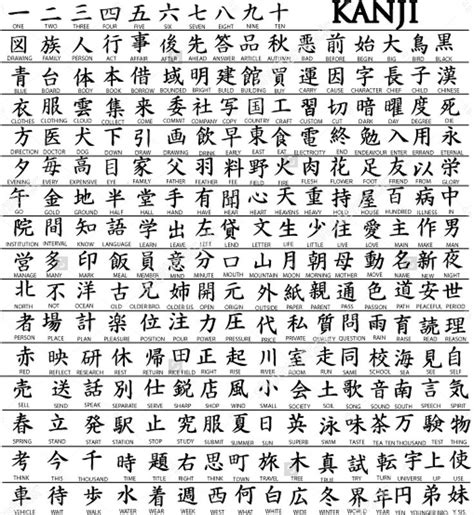 一 二 三 四 五 六 七 八 九 十 KANJI
ONE TWO THREE FOUR FIVE SIX SEVEN EIGHT NINE TEN
図 族 人 行 事 後 先 答 品 秋 悪 前 始 大 鳥 黒
DRAWING FAMILY PERSON AHEAD ANSWER ARTICLE AUTUMN BAD BEFORE BEGIN BIG BIRD BLACK
青 台 体 本 借 域 明 建 館 買 運 因 字 長 子 漢
BLUE BOARD BODY BOOK BORROW BOUNDED BRIGHT BUILD BUY CARRY CAUSE CHARACTER CHIEF CHILD CHINESE
衣 服 雲 集 来 委 社 写 国 工 習 切 暗 度 死
CLOTHES CLOTHING CLOUD COLLECT COME COMMIT COMPANY COPY COUNTRY CRAFT CUT DARK DEGREE DIE
方 医 犬 下 引 画 飲 早 東 食 電 終 勉 入 用 永
DIRECTION DOCTOR DOG DOWN DRAW DRINK EARLY EAST EAT END ENDEAVOUR ENTER ERRAND ETERNAL
夕 毎 高 目 家 父 羽 料 野 火 肉 花 足 友 以 栄
EVENING EVERY EXPENSIVE EYE FAMILY FATHER FEATHER FEE FIRE FLESH FLOWER FOOT FRIEND FROM GLORY
午 金 地 半 堂 手 有 聞 心 天 重 持 屋 百 病 中
GO GOLD GROUND HALF HALL HAND HAVE HEAR HEART HEAVENS HEAVY HOLD HOUSE HUNDRED ILLNESS IN
院 間 知 語 学 出 左 貸 文 生 少 住 愛 主 作 男
INSTITUTION INTERVAL KNOW LANGUAGE LEARN LEAVE LEFT LEND LETTER LIFE LITTLE LIVE LOVE MAKE MAN
営 多 印 飯 員 意 分 口 山 月 朝 母 動 名 新 夜
MANAGE MANY MARK MEAL MEMBER MIND MINUTE MOUTH MOUNTAIN MOON MORNING MOTHER MOVE NAME NEW NIGHT
北 不 洋 古 兄 姉 開 元 外 紙 親 通 色 道 安 世
NORTH NOT OCEAN OLD OLDER BRO. OLDER SIS. OPEN ORIGIN OUTSIDE PAPER PARENT PASS PASSION PATH PEACEFUL PERIOD
者 場 計 楽 位 注 力 圧 代 私 質 問 雨 育 読 理
PERSON PLACE PLAN PLEASURE POSITION POUR POWER PRESSURE PRICE PRIVATE QUALITY QUESTION RAIN RAISE READ REASON
赤 映 研 休 帰 田 正 起 川 室 走 同 校 海 見 自
RED REFLECT RESEARCH REST RETURN RICE FIELD RIGHT RISE RIVER ROOM RUN SAME SCHOOL SEA SEE SELF
売 送 話 別 仕 鋭 店 風 小 会 土 歌 音 南 言 気
SELL SEND SPEAK SEPARATE SERVE SHARP SHOP SMALL SOCIETY SOIL SONG SOUND SOUTH SPEECH SPIRIT
春 立 発 駅 止 究 服 夏 日 英 泳 味 茶 万 験 物
SPRING STAND START STATION STOP STUDY SUBMIT SUMMER SUN SUPERB SWIM TASTE TEA TEN THOUSAND TEST THING
考 今 千 時 題 右 思 町 旅 木 真 試 転 宇 上 使
THINK THIS THOUSAND TIME TOWN TRAVEL TREE TRUE TRY TURN UNIVERSE UP USE
車 待 歩 水 着 週 西 何 白 広 冬 女 界 年 弟 妹
VEHICLE WAIT WALK WATER WEAR WEEK WEST WHAT WHITE WIDE WINTER WOMAN WORLD YEAR YOUNGER BRO. Y.SIS.